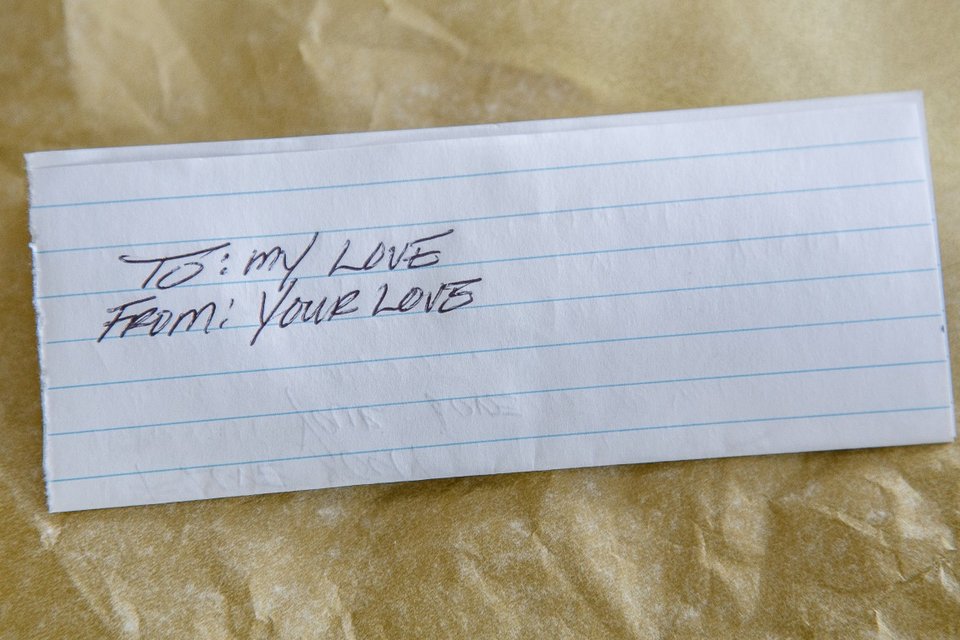 TO: MY LOVE
FROM: YOUR LOVE